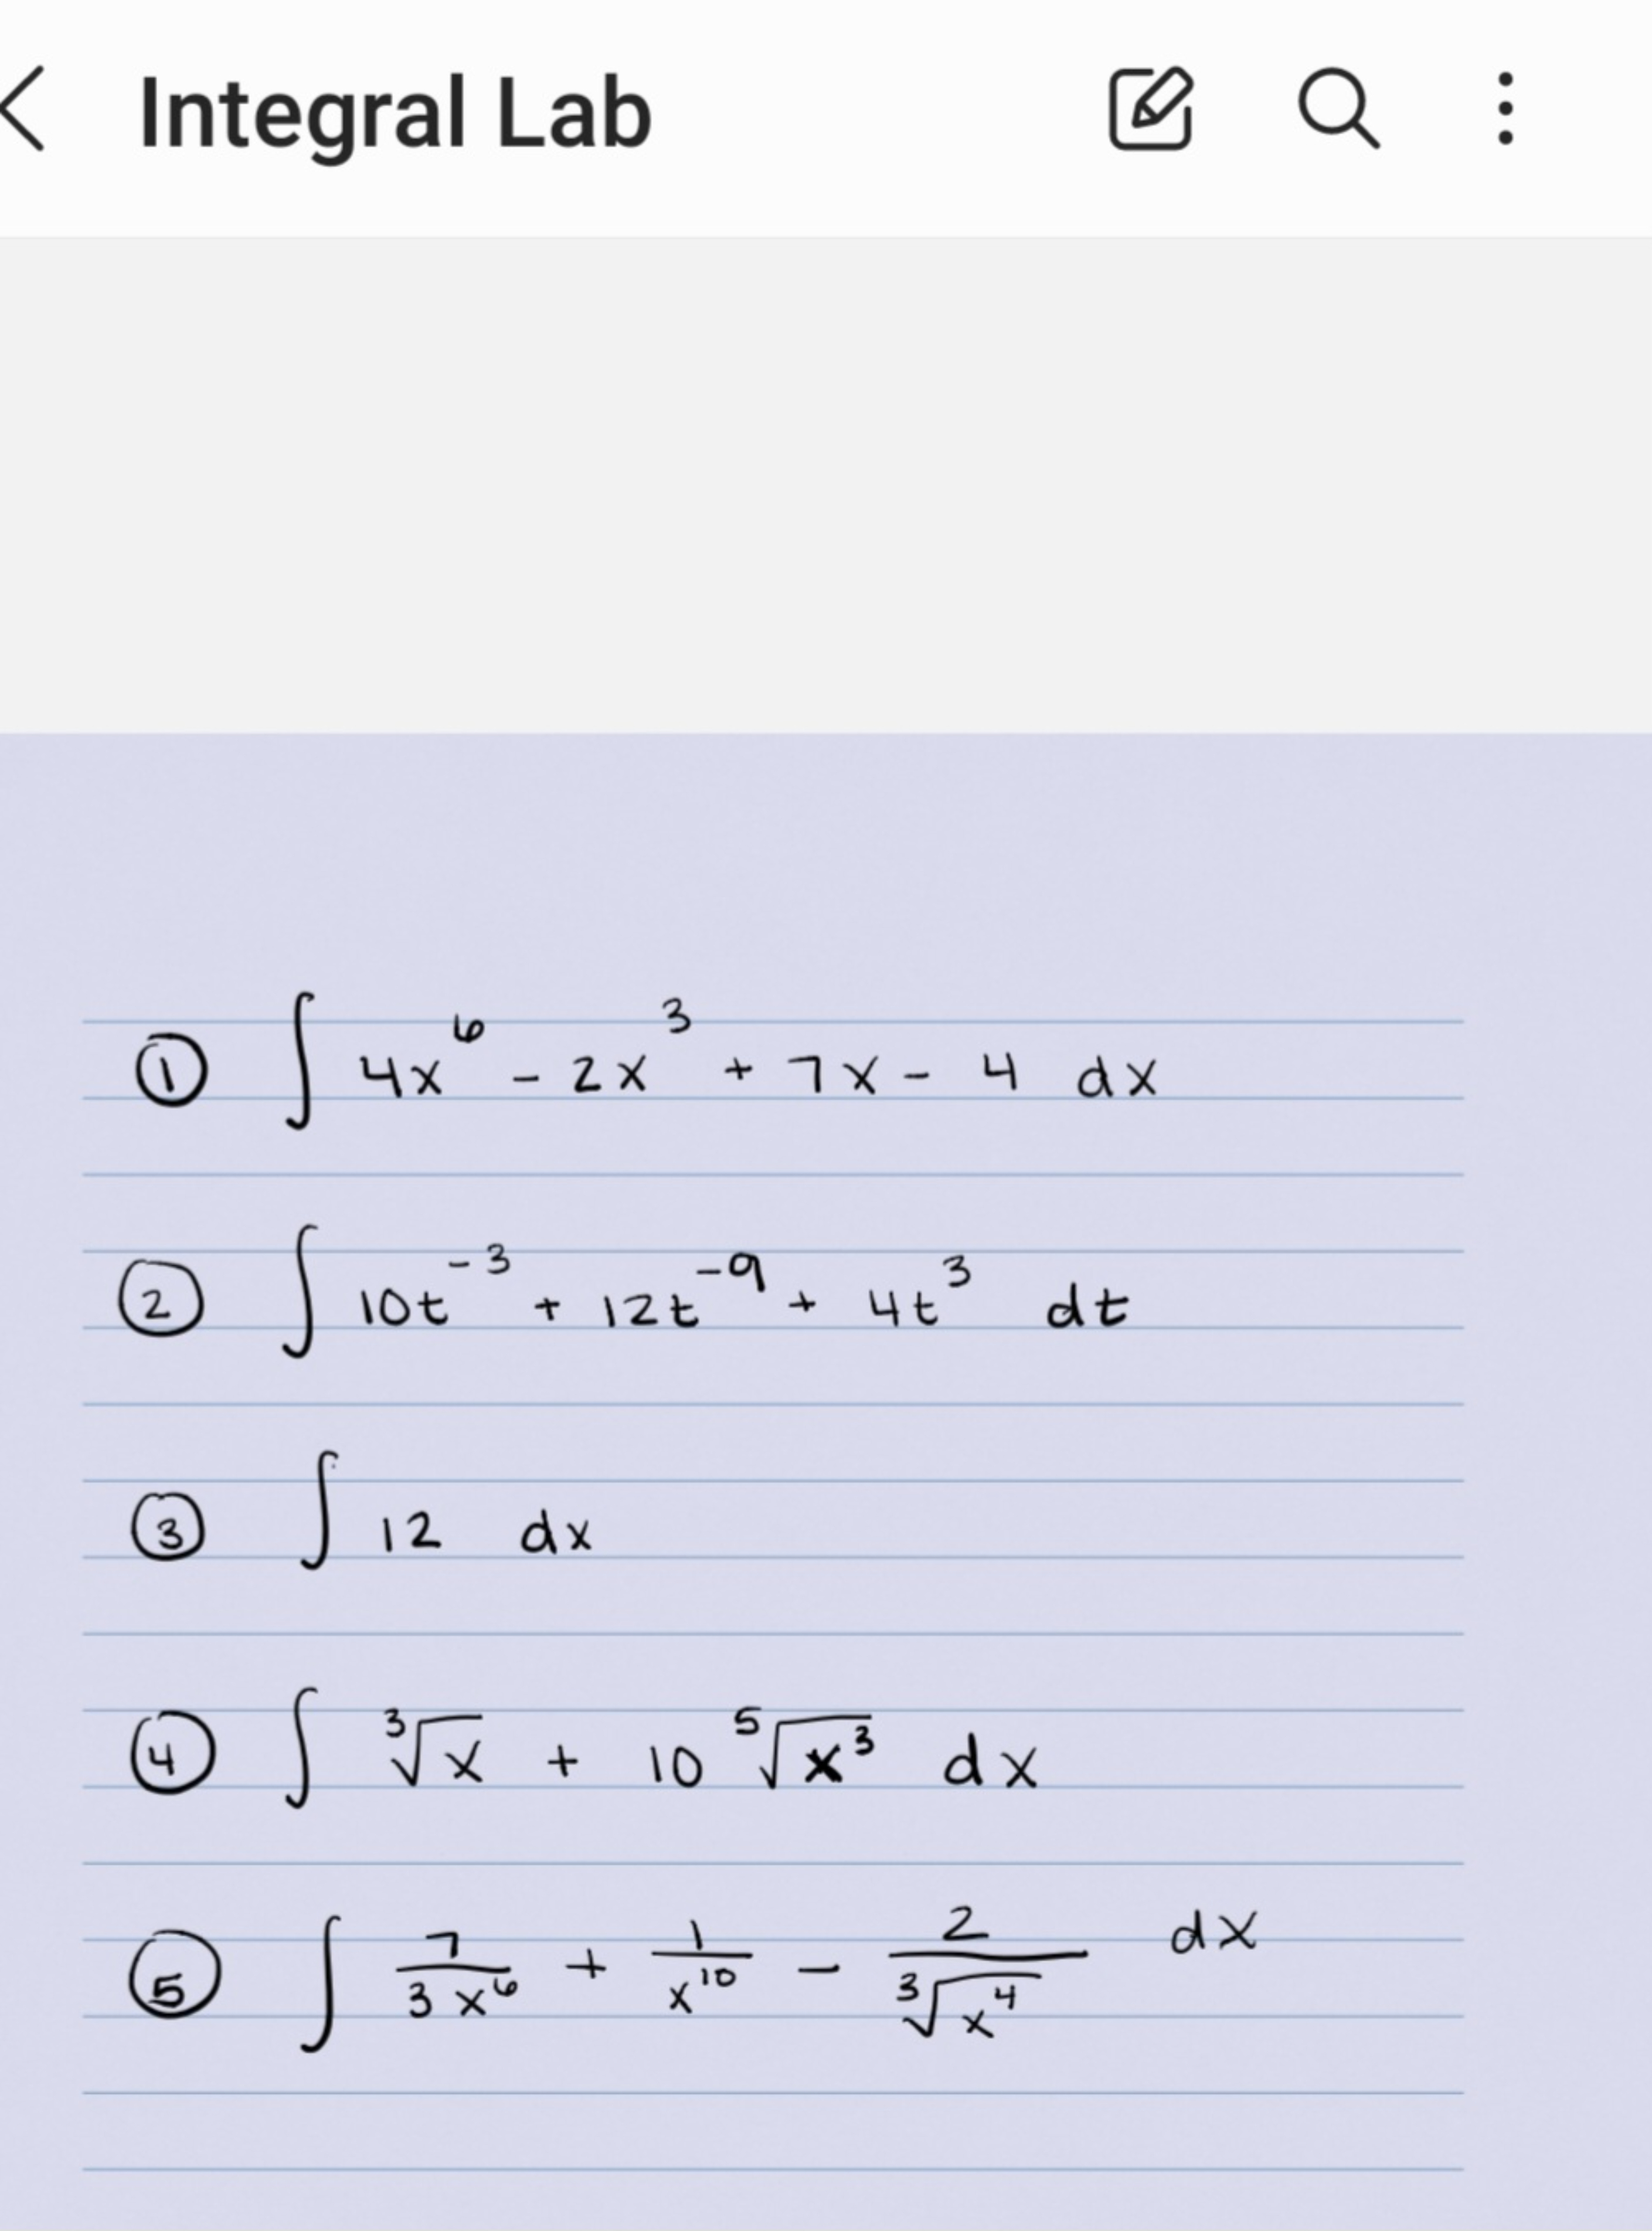 Integral Lab
① ∫ 4x⁶ - 2x³ + 7x - 4 dx
② ∫ 10t⁻³ + 12t⁻⁹ + 4t³ dt
③ ∫ 12 dx
④ ∫ ³√x + 10 ⁵√x³ dx
⑤ ∫ 7/3x⁶ + 1/x¹⁰ - 2/³√x⁴ dx